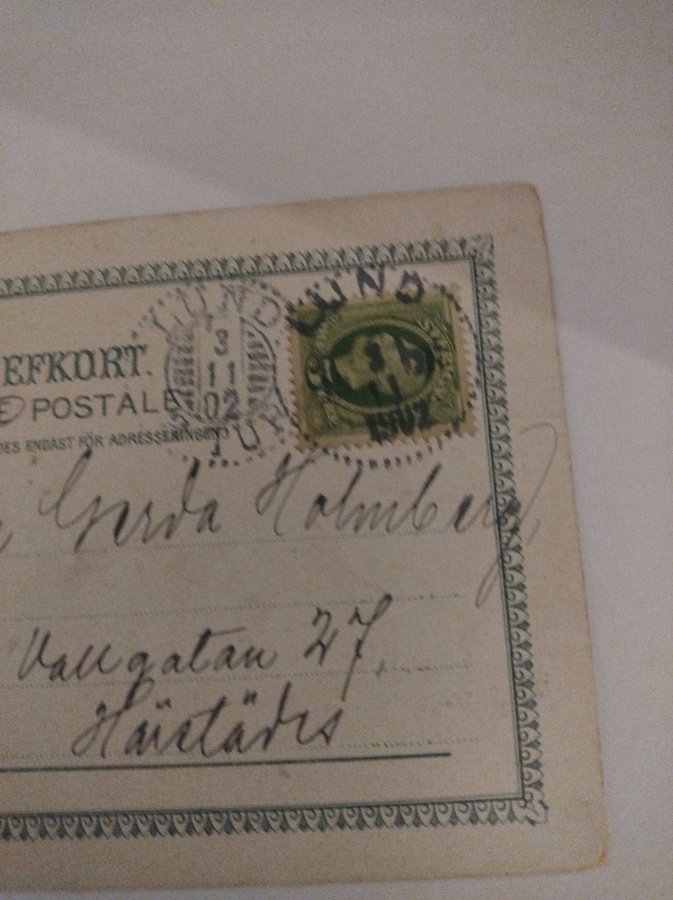 LUND
3
11
02
LUND
LUND
11
1902
EFKORT.
POSTALE
DES ENDAST FÖR ADRESSERINGEN
Gerda Holmberg
Vallgatan 27,
Härstädes